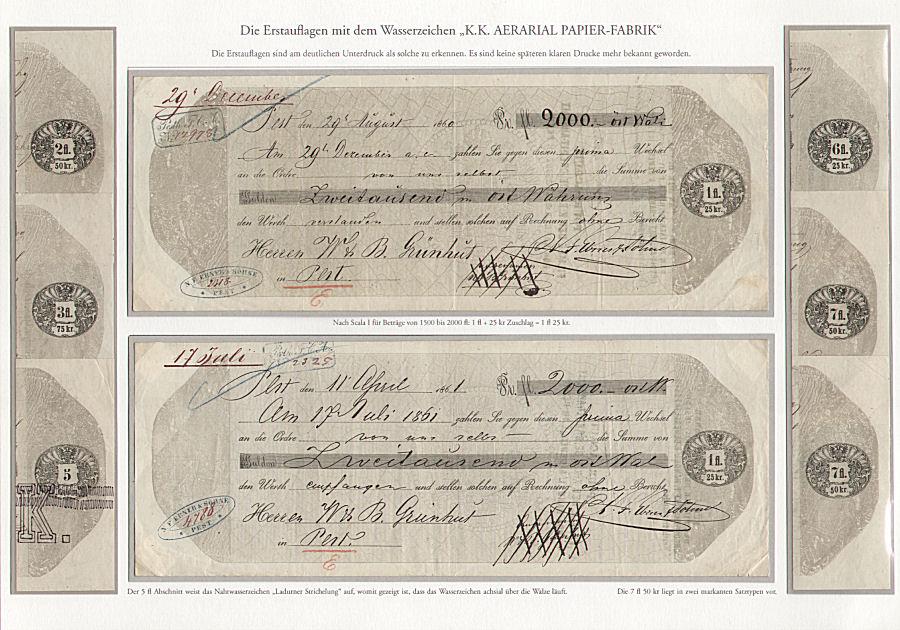 Die Erstauflagen mit dem Wasserzeichen „K.K. AERARIAL PAPIER-FABRIK“
Die Erstauflagen sind am deutlichen Unterdruck als solche zu erkennen. Es sind keine späteren klaren Drucke mehr bekannt geworden.
2fl.
50 kr.
3fl.
75 kr.
5
29t December
Pest den 29t August 1860 Pr. fl. 2000.- öst Wäh
Am 29t Dezember a. c. zahlen Sie gegen diesen prima Wechsel
an die Ordre von uns selbst die Summe von
Gulden Zweitausend in öst Währung
den Werth verstanden und stellen solchen auf Rechnung ohne Bericht
Herren W & B. Grünhut
in Pest
N. F. EBNER & SÖHNE
PEST
1fl.
25 kr.
Nach Scala I für Beträge von 1500 bis 2000 fl: 1 fl + 25 kr Zuschlag = 1 fl 25 kr.
17 Juli
2325
Pest den 11t April 1861. Pr. fl. 2000.- öst W.
Am 17t Juli 1861 zahlen Sie gegen diesen prima Wechsel
an die Ordre von uns selbst die Summe von
Gulden Zweitausend in öst Wäh
den Werth empfangen und stellen solchen auf Rechnung ohne Bericht
Herren W & B. Grünhut
in Pest
N. F. EBNER & SÖHNE
4768
PEST
1fl.
25 kr.
6fl.
25 kr.
7fl.
50 kr.
7fl.
50 kr.
Der 5 fl Abschnitt weist das Nahtwasserzeichen „Ladurner Strichelung“ auf, womit gezeigt ist, dass das Wasserzeichen achsial über die Walze läuft.
Die 7 fl 50 kr liegt in zwei markanten Satztypen vor.